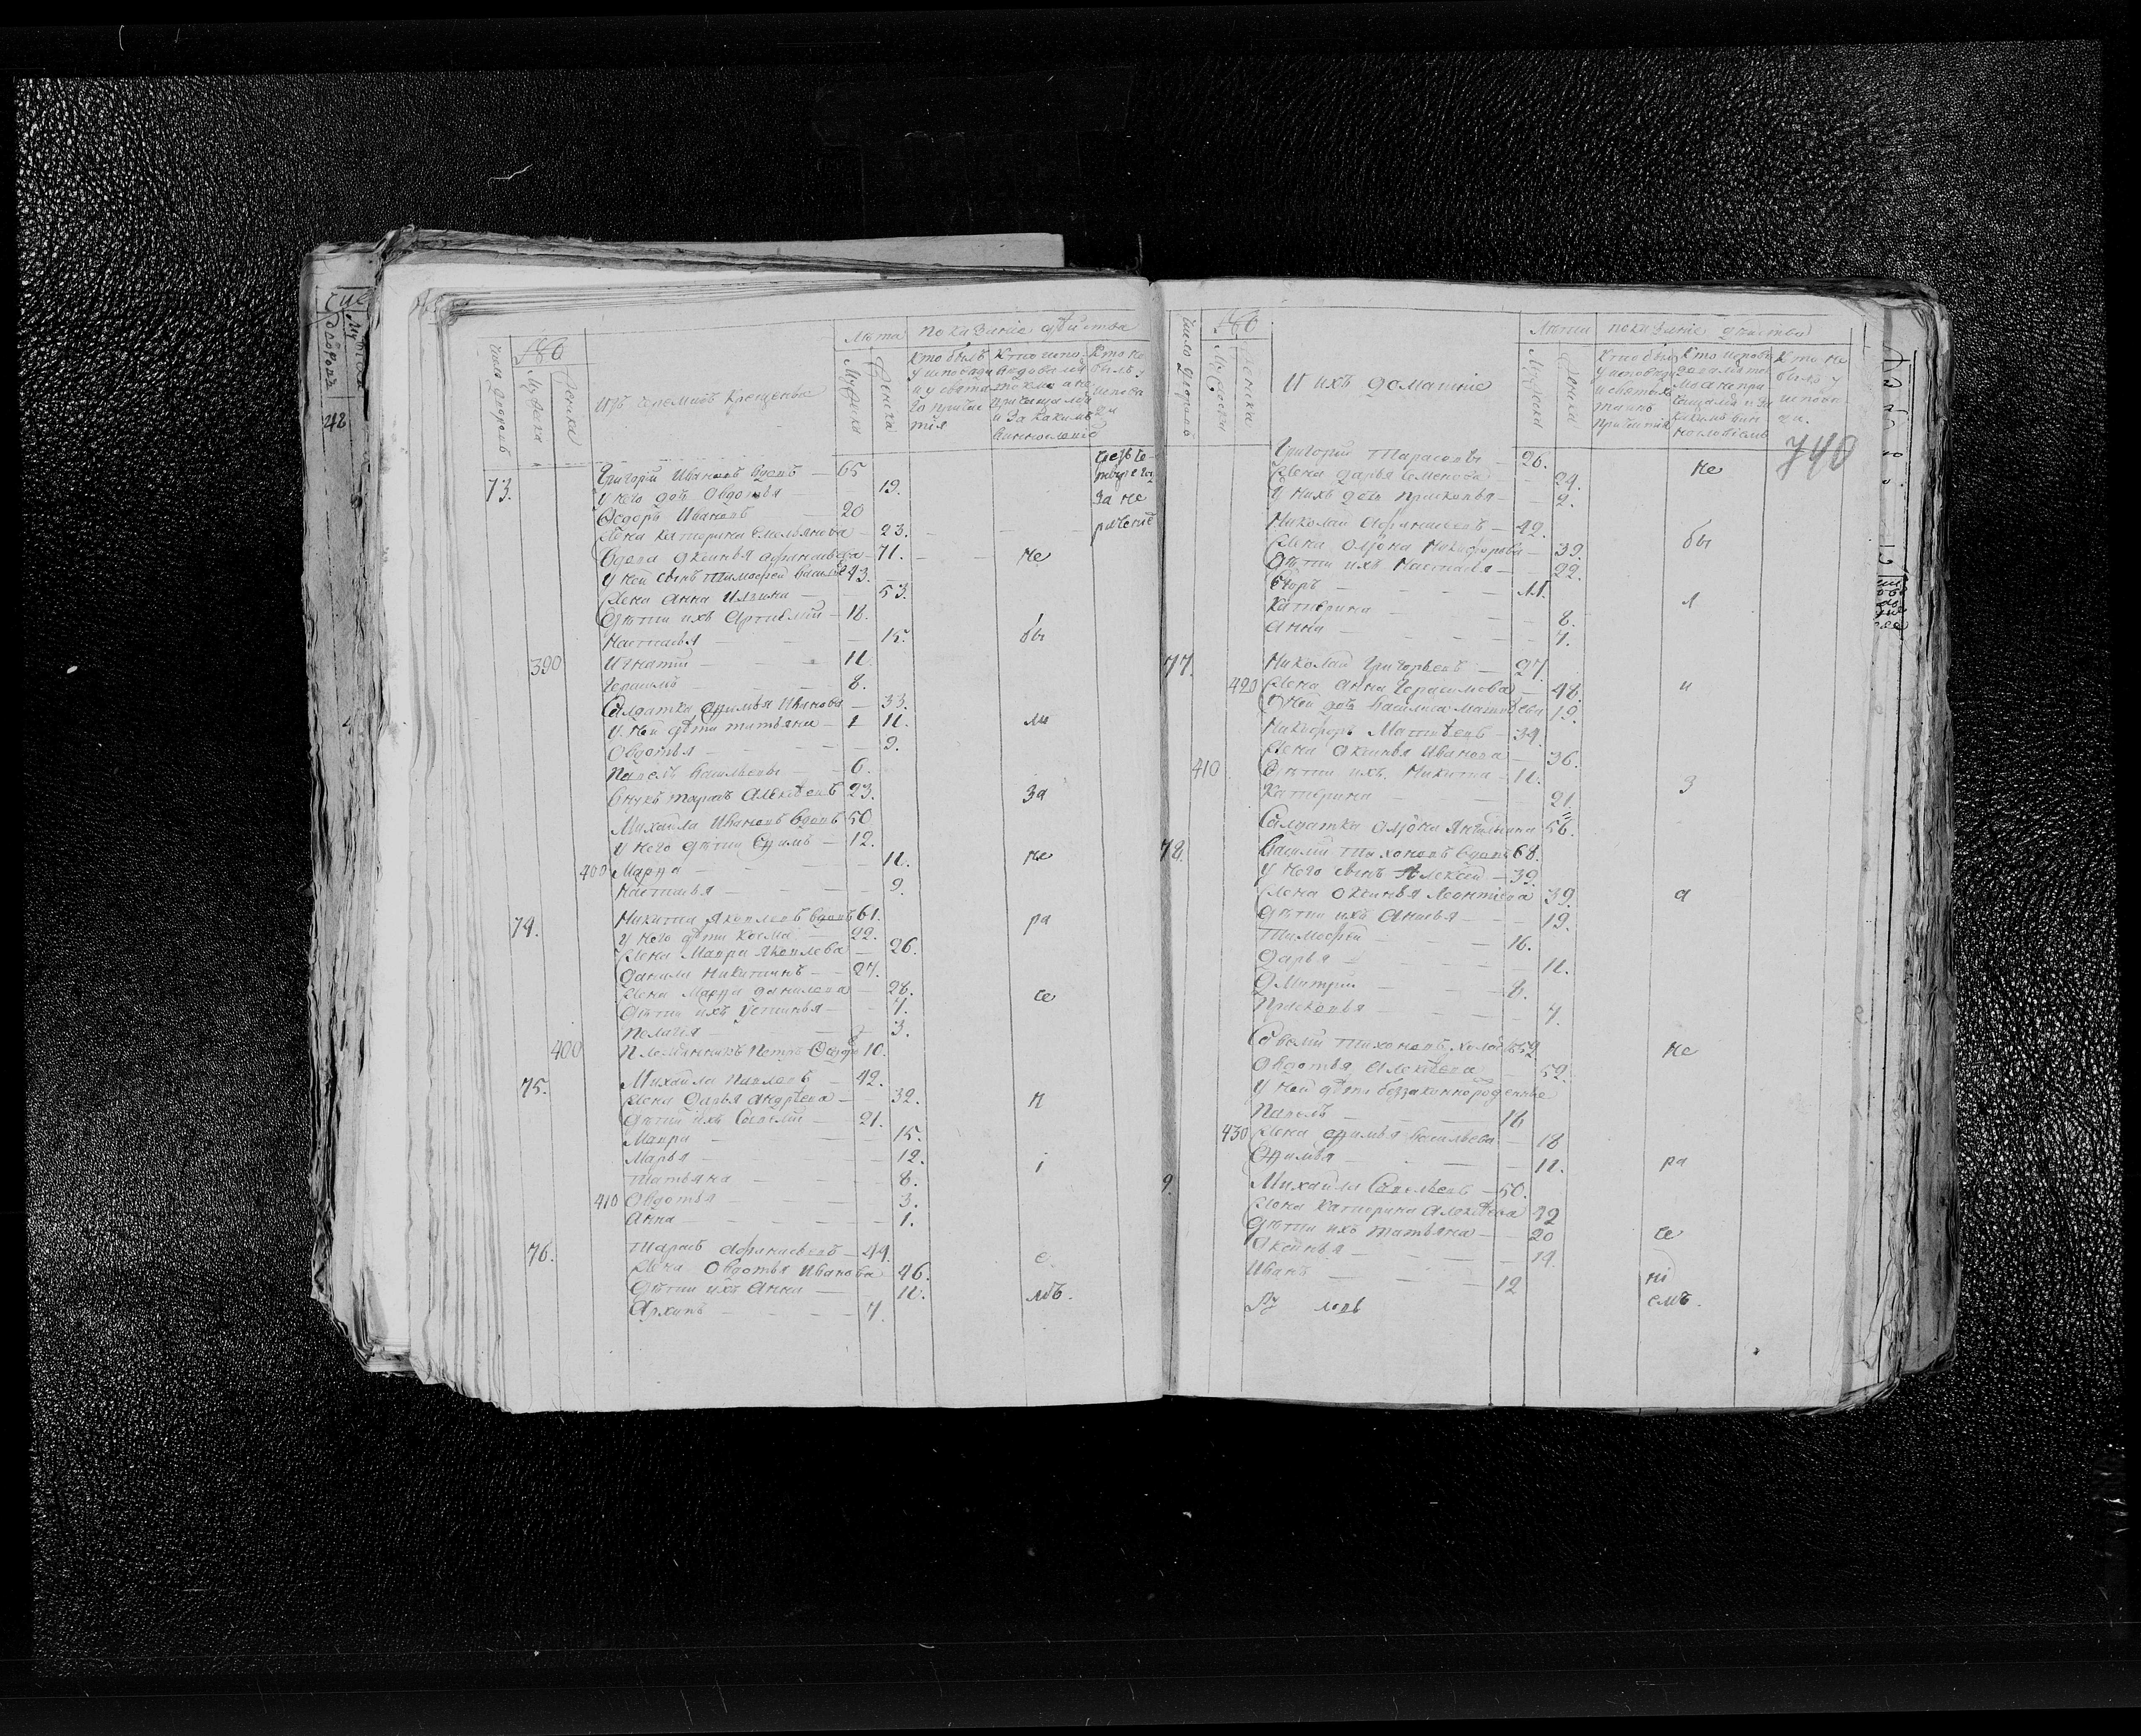 число дворовъ
Число
Мужеска
Женска
Изъ черемисъ крещеныя
Лѣта
Мужеска
Женска
показаніе дѣйства
Кто былъ у исповѣди и у святаго причастія
Кто исповѣдовался токмо а не причащался и за какимъ винословіемъ
Кто не былъ у исповѣди
73. Григорій Ивановъ вдовъ — 65
У него дочь Овдотья — 19.
Ѳедоръ Ивановъ — 20
Жена Катерина Емельянова — 23.
Вдова Оксинья Афанасьева — 71.
У ней сынъ Тимофей 43.
Жена Анна Ильина — 53.
Дѣти ихъ Артемій — 18.
Настасья — 15.
390 Игнатій — 11.
Герасимъ — 8.
Салдатка Ефимья Иванова — 33.
У ней дѣти Татьяна — 11.
Овдотья — 9.
Павелъ Васильевъ — 6.
Внукъ Тарасъ Алексѣевъ 23.
Михайла Ивановъ вдовъ 50
У него дѣти Ефимъ — 12.
400 Марфа — 11.
Настасья — 9.
74. Никита Яковлевъ вдовъ 61.
У него дѣти Козма — 22.
Жена Мавра Яковлева — 26.
Данила Никитинъ — 27.
Жена Марфа Данилова — 28.
Дѣти ихъ Устинья — 7.
Пелагея — 3.
400 Племянникъ Петръ Ѳедоро 10.
75. Михайла Павловъ — 42.
Жена Дарья Андрѣева — 32.
Дѣти ихъ Савелій — 21.
Мавра — 15.
Марья — 12.
Татьяна — 8.
410 Овдотья — 3.
Анна — 1.
76. Тарасъ Афанасьевъ — 44.
Жена Овдотья Иванова 46.
Дѣти ихъ Анна — 11.
Архипъ — 7.
за не
не
бы
ли
за
не
ра
се
н
і
е
мъ.
число дворовъ
Число
Мужеска
Женска
И ихъ домашніе
Лѣта
Мужеска
Женска
показаніе дѣйства
Кто былъ у исповѣди и святыхъ таинъ причастія
Кто исповѣдовался токмо а не причащался и за какимъ винословіемъ
Кто не былъ у исповѣди.
740
Григорій Тарасовъ — 26.
Жена Дарья Семенова — 24.
У нихъ дочь Прасковья — 2.
Николай Афанасьевъ — 42.
Жена Алёна Никифорова — 39.
Дѣти ихъ Настасья — 22.
Егоръ — 11.
Катерина — 8.
Анна — 7.
77. Николай Григорьевъ — 27.
420 Жена Анна Герасимова — 48.
У ней дочь Василиса Матвѣева 19.
Никифоръ Матвѣевъ — 34.
Жена Оксинья Иванова — 36.
410 Дѣти ихъ Никита — 11.
Катерина — 21.
Салдатка Алёна 56.
78. Василій Тихоновъ вдовъ 68.
У него сынъ Алексей — 39.
Жена Оксинья Леонтіева 39.
Дѣти ихъ Анисья — 19.
Тимофей — 16.
Дарья — 11.
Дмитрій — 8.
Прасковья — 7.
Савелій Тихоновъ холостъ 52
Овдотья Алексѣева — 52.
У ней дѣти беззаконнорожденные
Павелъ — 16
430 Жена Ефимья Васильева — 18
Ефимья — 11.
9. Михайла Савельевъ — 50.
Жена Катерина Алексѣева 42
Дѣти ихъ Татьяна — 20
Оксинья — 14.
Иванъ — 12
не
бы
л
и
з
а
не
ра
се
ні
емъ.